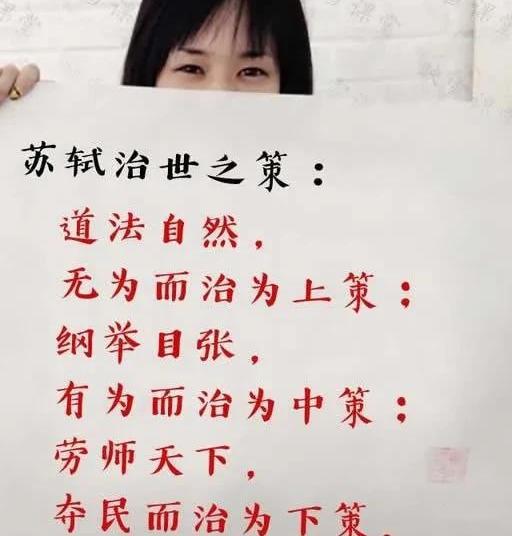 苏轼治世之策：
道法自然，
无为而治为上策；
纲举目张，
有为而治为中策；
劳师天下，
夺民而治为下策.